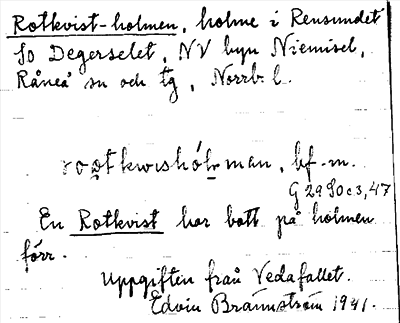 Rotkvist-holmen, holme i Rensundet
SO Degerselet, NV byn Niemisel,
Råneå sn och tg, Norrb. l.
rootkwishólman, bf. m.
G 29 SO c 3, 47
En Rotkvist har bott på holmen
förr.
Uppgiften från Vedafallet.
Edvin Brännström 1941.